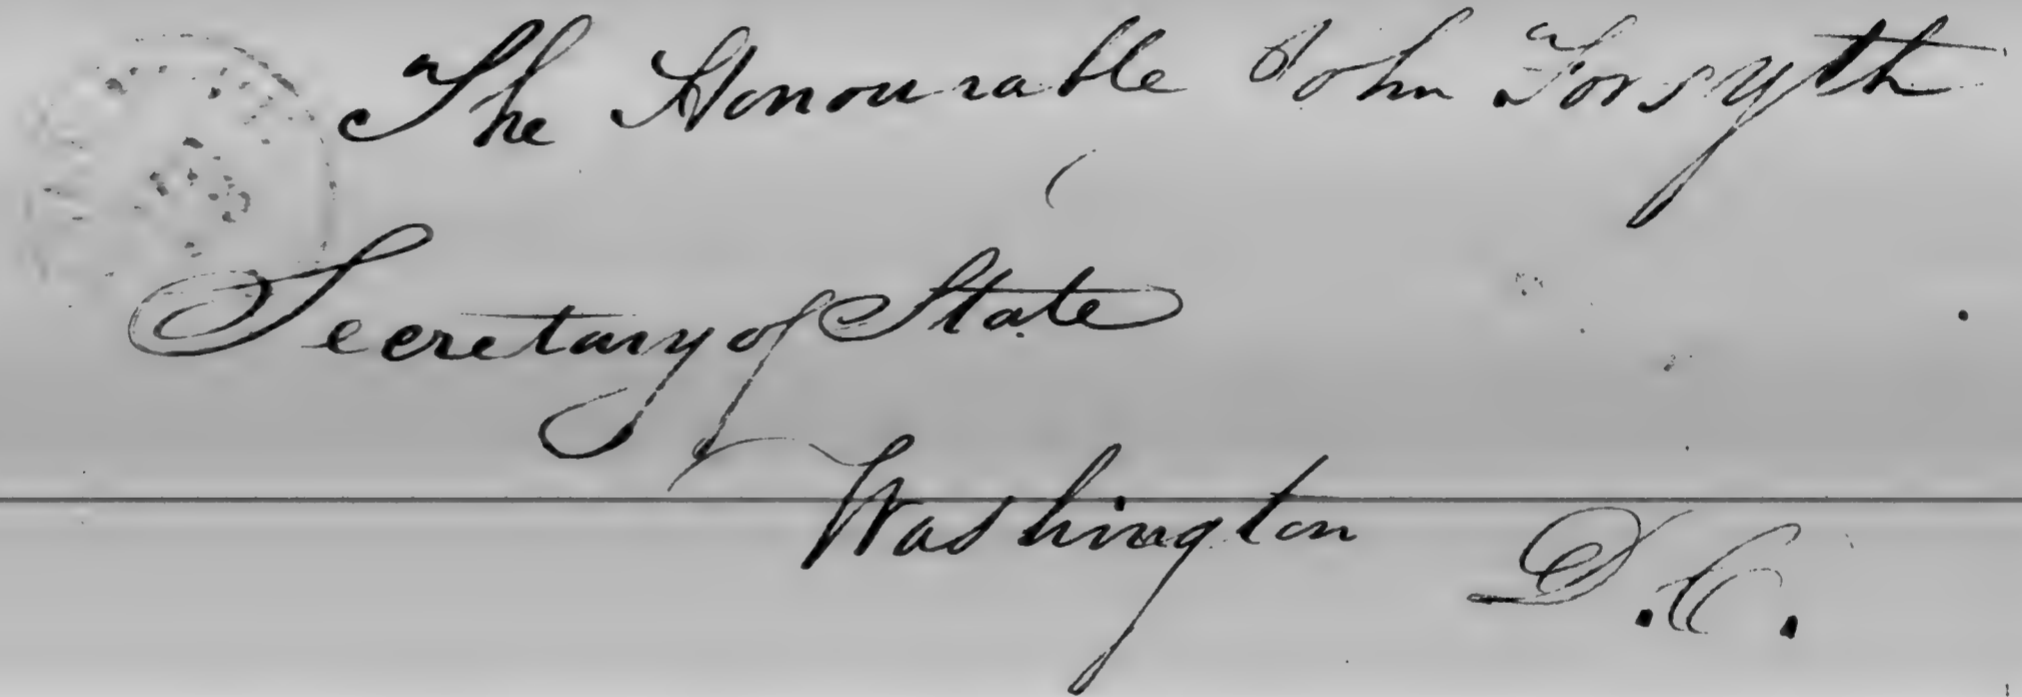 The Honourable John Forsyth
Secretary of State
Washington D.C.